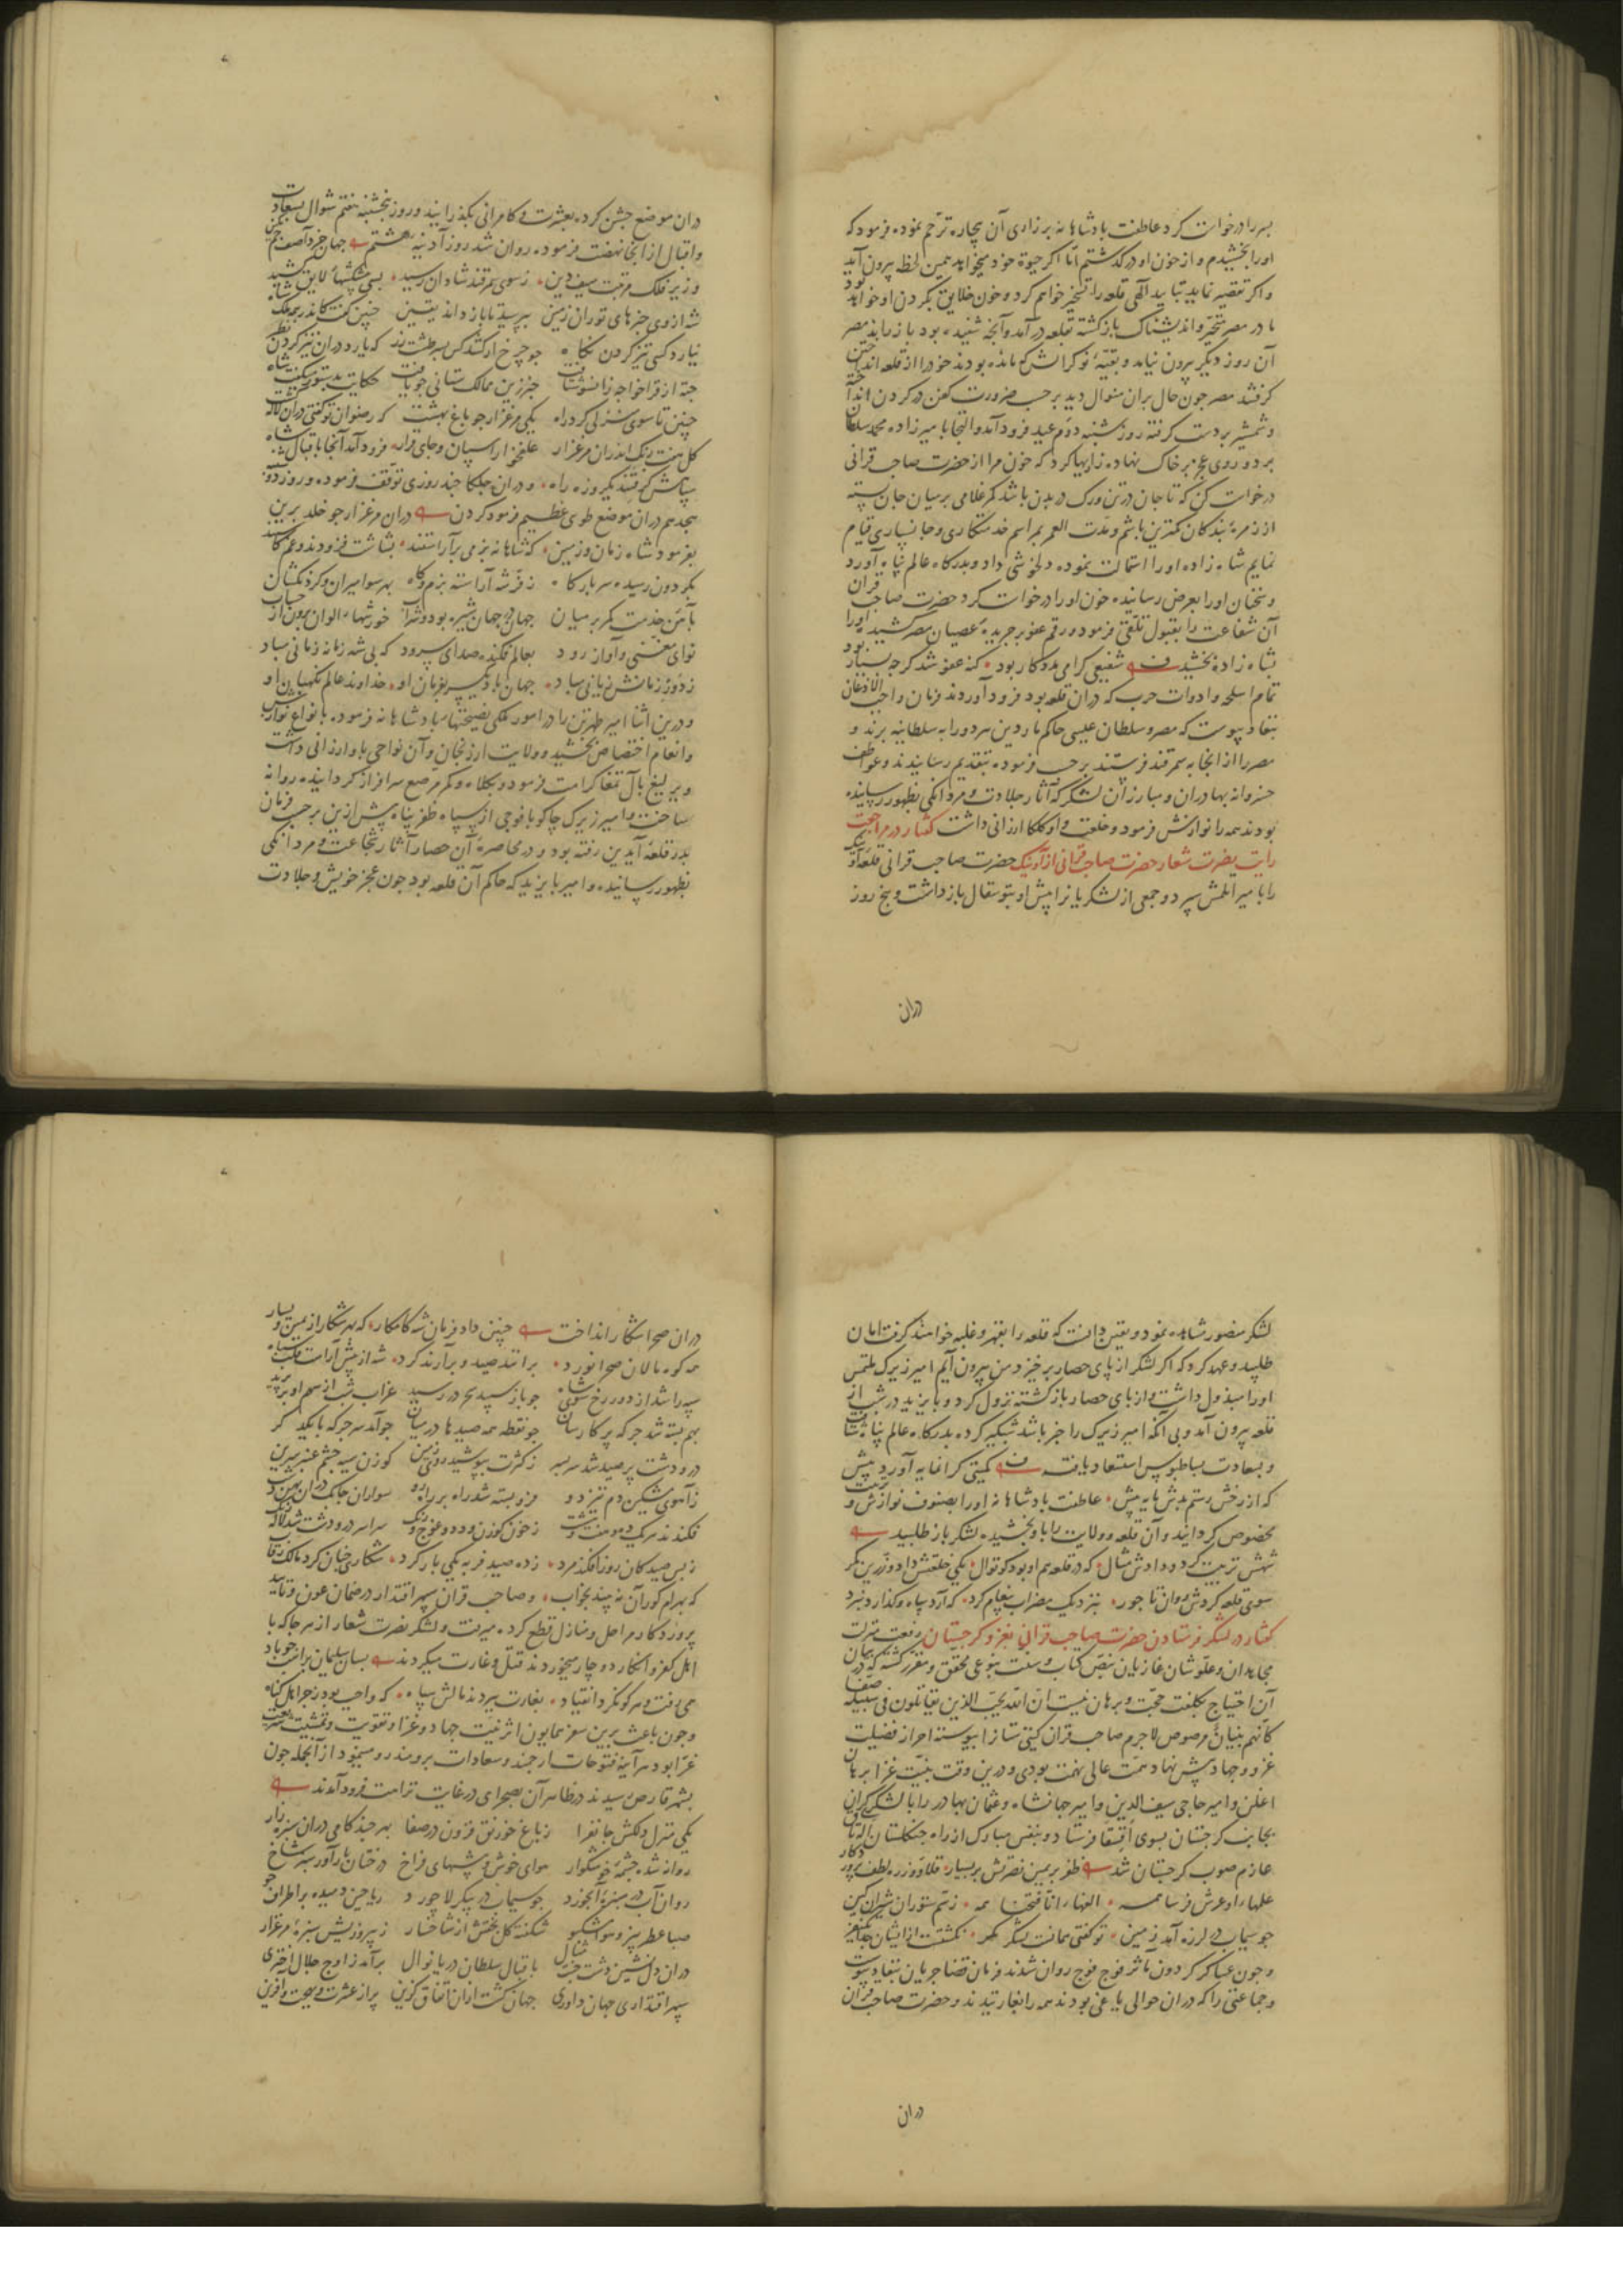 بسر را درخواست کرد عاطفت بادشاهانه بر زاری آن بیچاره ترحم نموده فرمود که
اورا بخشیدم و از خون او درگذشتم اما اکر حیوة خود میخواهد همین لحظه بیرون آید
و اکر تقصیر نماید بتایید آلهی قلعه را تسخیر خواهم کرد و خون خلایق بکردن او خواهد بود
مادر مصر متحیر و اندیشناک بازکشته بقلعه درآمد و آنجه شنیده بود باز راند مصر
آن روز دیکر بیرون نیامد و بقیهٔ نوکرانش که مانده بودند خود را از قلعه انداختن
کرفتند مصر جون حال بران منوال دید بر حسب ضرورت کفن در کردن انداخته
و شمشیر بر دست کرفته روز شنبه دوم عید فرود آمد و التجا بامیرزاده محمد سلطان
برد و روی عجز بر خاک نهاده زاریها کرد که خون مرا از حضرت صاحب قرانی
درخواست کن که تا جان در تن و رک در بدن باشد کمر غلامی بر میان جان بسته
از زمرهٔ بندکان کمترین باشم و مدت العمر بمراسم خدمتکاری و جانسپاری قیام
نمایم شاه زاده او را استمالت نموده دلخوشی داد و بدرکاه عالم پناه آورد
و سخنان او را بعرض رسانیده خون او را درخواست کرد حضرت صاحب قران
آن شفاعت را بقبول تلقی فرمود و رقم عفو بر جریدهٔ عصیان مصر کشیده او را
بشاه زاده بخشید ف شفیعی کرامی مددکار بود کنه عفو شد کرجه بسیار بود
تمام اسلحه و ادوات حرب که دران قلعه بود فرود آوردند فرمان واجب الاذعان
بنفاذ پیوست که مصر و سلطان عیسی حاکم ماردین هر دو را به سلطانیه برند و
مصر را از آنجا به سمرقند فرستند بر حسب فرموده بتقدیم رسانیدند و عواطف
خسروانه بهادران و مبارزان لشکر که آثار جلادت و مردانکی بظهور رسانیده
بودند همه را نوازش فرمود و خلعت و اوکلکا ارزانی داشت کفتار در مراجعت
رایت نصرت شعار حضرت صاحب قرانی از آونیک حضرت صاحب قرانی قلعه اونیک
را بامیر اتلمش سپرد و جمعی از لشکریانرا پیش او بتوسقال بازداشت و پنج روز
دران
دران موضع جشن کرده بعشرت و کامرانی بکذرانید و روز پنجشنبه هفتم شوال بسعادت
و اقبال از آنجا نهضت فرموده روان شد روز آدینه هشتم جهان خرد آصف جم نکین
وزیر فلک مرتبت سیف دین زسوی سمرقند شادان رسید بسی پیشکشهاء لایق کشید
شه ازوی خبرهای توران زمین بپرسید تا باز داند یقین جنین کفت کاندر همه ملک شاه
نیارد کسی تیز کردن نکاه جو جرخ ار کند کس بسر طشت زر که یارد دران تیز کردن نظر
جنین تا سوی منزلی کرد راه یکی مرغزار جو باغ بهشت که رضوان توکفتی دران لاله کشت
کل هفت رنک اندران مرغزار علفخوار اسپان و جای قرار فرود آمد آنجا باقبال شاه
سپاهش کرفتند یکروزه راه و دران جلکا جند روزی توقف فرموده و روز دوشنبه
هجدهم دران موضع طوی عظیم فرمود کردن دران مرغزار جو خلد برین
بفرمود شاه زمان و زمین که شاهانه بزمی برآراستند بشاشت فزودند و غم کاستند
بکردون رسیده سر بارکاه ز فرشه آراسته بزم کاه بهر سو امیران و کردنکشان
بآئین خدمت کمر بر میان جهان در جهان شیره بود و شراب خورشهاء الوان برون از حساب
نوای مغنی و آواز رود بعالم فکنده صدای سرود که بی شه زمانه زمانی مباد
ز دور زمانش زیانی مباد جهان باد یکسر بفرمان او خداوند عالم نکهبان او
و درین اثنا امیر طهرتن را در امور ملکی نصیحتهاء بادشاهانه فرموده بانواع نوازش
و انعام اختصاص بخشید و ولایت ارزنجان و آن نواحی باو ارزانی داشت
و یرلیغ بآل تمغا کرامت فرمود و بکلاه و کمر مرصع سرافراز کردانیده روانه
ساخت و امیر زیرک جاکو با فوجی از سپاه ظفر پناه پیش ازین بر حسب فرمان
بدر قلعه آیدین رفته بود و در محاصرهٔ آن حصار آثار شجاعت و مردانکی
بظهور رسانیده و امیر بایزید که حاکم آن قلعه بود جون عجز خویش و جلادت
لشکر منصور مشاهده نمود و بیقین دانست که قلعه را بقهر و غلبه خواهند کرفت امان
طلبید و عهد کرد که اکر لشکر از پای حصار برخیزد من بیرون آیم امیر زیرک ملتمس
او را مبذول داشت و از پای حصار بازکشته نزول کرد و بایزید در شب از
قلعه بیرون آمد و بی انکه امیر زیرک را خبر باشد شبکیر کرده بدرکاه عالم پناه شتافت
و بسعادت بساط بوس استسعاد یافت ف کمیتی کرانمایه آورد پیش
که از رخش رستم بدش پایه بیش عاطفت بادشاهانه او را بصنوف نوازش و تربیت
مخصوص کردانید و آن قلعه و ولایت را باو بخشیده لشکر باز طلبید
شهش تربیت کرد و دادش مثال که در قلعه هم او بود کوتوال یکی خلعتش داد و زرین کمر
سوی قلعه کردش روان تاجور بنزدیک مضراب پیغام کرد که آرد سپاه و کذارد نبرد
کفتار در لشکر فرستادن حضرت صاحب قرانی بغزو کرجستان رفعت منزلت
مجاهدان و علو شان غازیان بنص کتاب و سنت بنوعی محقق و مقرر کشته که در بیان
آن احتیاج بکلفت حجت و برهان نیست ان الله یحب الذین یقاتلون فی سبیله صفا
کانهم بنیان مرصوص لاجرم صاحب قران کیتی ستان را پیوسته احراز فضیلت
غزو و جهاد پیش نهاد همت عالی نهمت بودی و درین وقت بنیت غزا برهان
اغلن و امیر حاجی سیف الدین و امیر جهانشاه و عثمان بهادر را با لشکر کران
بجانب کرجستان بسوی آقسقا فرستاد و بنفس مبارک از راه جنکلستان الاتاق
عازم صوب کرجستان شد ظفر بر یمین نصرتش بر یسار قلاوز ره لطف پروردکار
علمهاء او عرش فرسا همه الفهاء انا فتحنا همه ز سم ستوران شیران کین
جو سیماب در لرزه آمد زمین
و جون عساکر کردون مآثر فوج فوج روان شدند فرمان قضا جریان بنفاذ پیوست
و جماعتی را که دران حوالی یاغی بودند همه را بغارتیدند و حضرت صاحب قران
دران
دران صحرا شکار انداخت جنین داد فرمان شه کامکار که بهر شکار از یمین و یسار
همه کوه مالان صحرا نورد برانند صید و برآرند کرد شه از پیش آراست قلب سپاه
سپه را شد از دور رخ سوی شاه جو باز سپید سحر در رسید غراب شب از سهم او بر پرید
بهم بسته شد جرکه پرکار سان جو نقطه همه صیدها در میان جو آمد سر جرکه با یکدکر
در و دشت پر صید شد سر بسر ز کثرت بپوشید روی زمین کوزن سیه جشم عنبر سرین
ز آهوی مشکین دم تیز دو فرو بسته شد راه بر راه رو سواران جابک دران پهن دشت
ز بس صید کان روز افکند مرد زده صید فربه یکی بار کرد شکاری جنان کرد مالک رقاب
که بهرام کور آن نه بیند بخواب و صاحب قران سپهر اقتدار در ضمان عون و تایید
پروردکار مراحل و منازل قطع کرده میرفت و لشکر نصرت شعار از هر جا که با
اهل کفر و انکار دوجار میخوردند قتل و غارت میکردند بسان سلیمان براسب جو باد
می رفت و هر کو نکرد انقیاد بغارت ببردند مالش سپاه که واجب بود زجر اهل کناه
و جون باعث برین سفر همایون اثر نیت جهاد و غزا و تقویت و تمشیت شریعت
غرا بود هر آینه فتوحات ارجمند و سعادات برومند رو مینمود از آنجمله جون
بشهر قارص رسیدند در ظاهر آن بصحرای در غایت نزاهت فرود آمدند
یکی منزل دلکش جانفزا ز باغ خورنق فزون در صفا بهر جند کامی دران سبزه زار
روانه شده جشمهٔ خوشکوار هوای خوش و بیشهای فراخ درختان بارآور سبز شاخ
روان آب در سبزهٔ آبخورد جو سیماب در پیکر لاجورد ریاحین دمیده بر اطراف جو
صبا عطر بیز و هوا مشکبو شکفته کل بخشش از شاخسار ز پیروز بیش سبزهٔ مرغزار
دران دل نشین دشت جنت مثال باقبال سلطان دریا نوال برآمد ز اوج جلال اختری
سپهر اقتداری جهان داوری جهان کشت ازان اتفاق کزین پر از عشرت و بهجت و آفرین